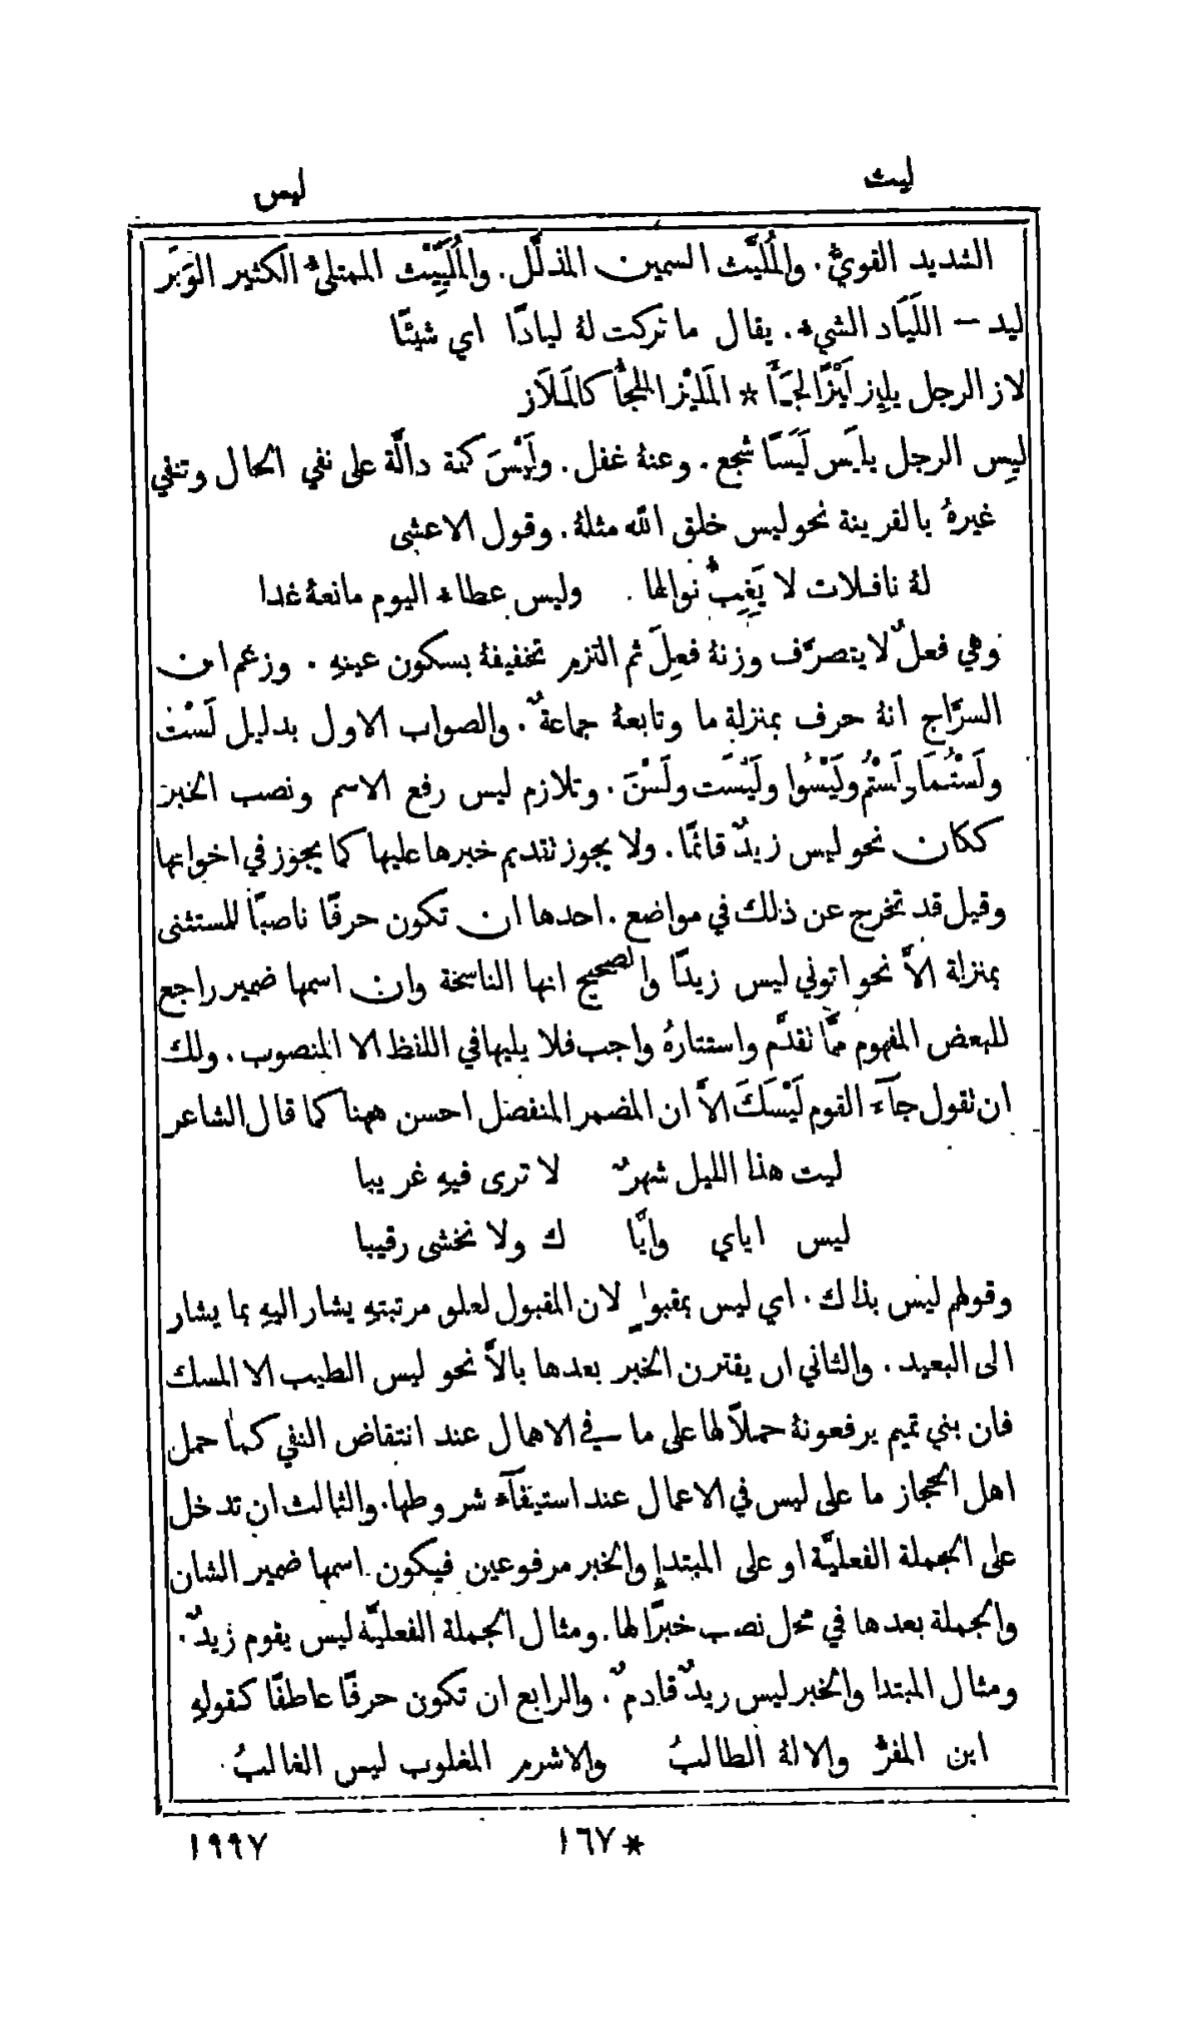 ليث
ليس
الشديد القويّ. والمُلَيَّث السمين المذلَّل. والمُلَيِّيْث الممتلئ الكثير الوَبَر
ليد — اللَيَاد الشيء. يقال ما تركت لهُ ليادًا اي شيئًا
لاز الرجل يليز لَيْزًا لَجَأَ * المَلِيْز الملجأ كالمَلَاز
ليِس الرجل يليَس لَيَسًا شجع. وعنهُ غفل. ولَيْسَ كلمة دالَّة على نفي الحال وتنفي
غيرهُ بالقرينة نحو ليس خلق الله مثلهُ. وقول الاعشى
لهُ نافلات لا يَغِبُّ نوالها . وليس عطاء اليوم مانعهُ غدا
وهي فعلٌ لا يتصرَّف وزنهُ فعِلَ ثم التزم تخفيفهُ بسكون عينهِ . وزعم ابن
السرَّاج انهُ حرف بمنزلة ما وتابعهُ جماعةٌ. والصواب الاول بدليل لَسْتُ
ولَسْتُمَا ولَسْتُم ولَيْسُوا ولَيْسَت ولَسْنَ. وتلازم ليس رفع الاسم ونصب الخبر
ككان نحو ليس زيدٌ قائمًا. ولا يجوز تقديم خبرها عليها كما يجوز في اخواتها
وقيل قد تخرج عن ذلك في مواضع. احدها ان تكون حرفًا ناصبًا للمستثنى
بمنزلة الاَّ نحو اتوني ليس زيدًا والصحيح انها الناسخة وان اسمها ضمير راجع
للبعض المفهوم ممَّا تقدَّم واستتارهُ واجب فلا يليها في اللفظ الا المنصوب. ولك
ان تقول جآء القوم لَيْسَكَ الاَّ ان المضمر المنفصل احسن ههنا كما قال الشاعر
ليت هذا الليل شهرٌ لا ترى فيهِ غريبا
ليس اياي وايَّا ك ولا نخشى رقيبا
وقولهم ليس بذاك. اي ليس بمقبولٍ لان المقبول لعلو مرتبتهِ يشار اليهِ بما يشار
الى البعيد. والثاني ان يقترن الخبر بعدها بالاَّ نحو ليس الطيب الا المسك
فان بني تميم يرفعونهُ حملاً لها على ما في الاهمال عند انتقاض النفي كما حمل
اهل الحجاز ما على ليس في الاعمال عند استيفآء شروطها. والثالث ان تدخل
على الجملة الفعليَّة او على المبتدإِ والخبر مرفوعين فيكون اسمها ضمير الشان
والجملة بعدها في محل نصب خبرًا لها. ومثال الجملة الفعليَّة ليس يقوم زيدٌ.
ومثال المبتدا والخبر ليس زيدٌ قادمٌ. والرابع ان تكون حرفًا عاطفًا كقولهِ
اين المفرُّ والالهُ الطالبُ والاشرم المغلوب ليس الغالبُ
*١٦٧
١٩٩٧